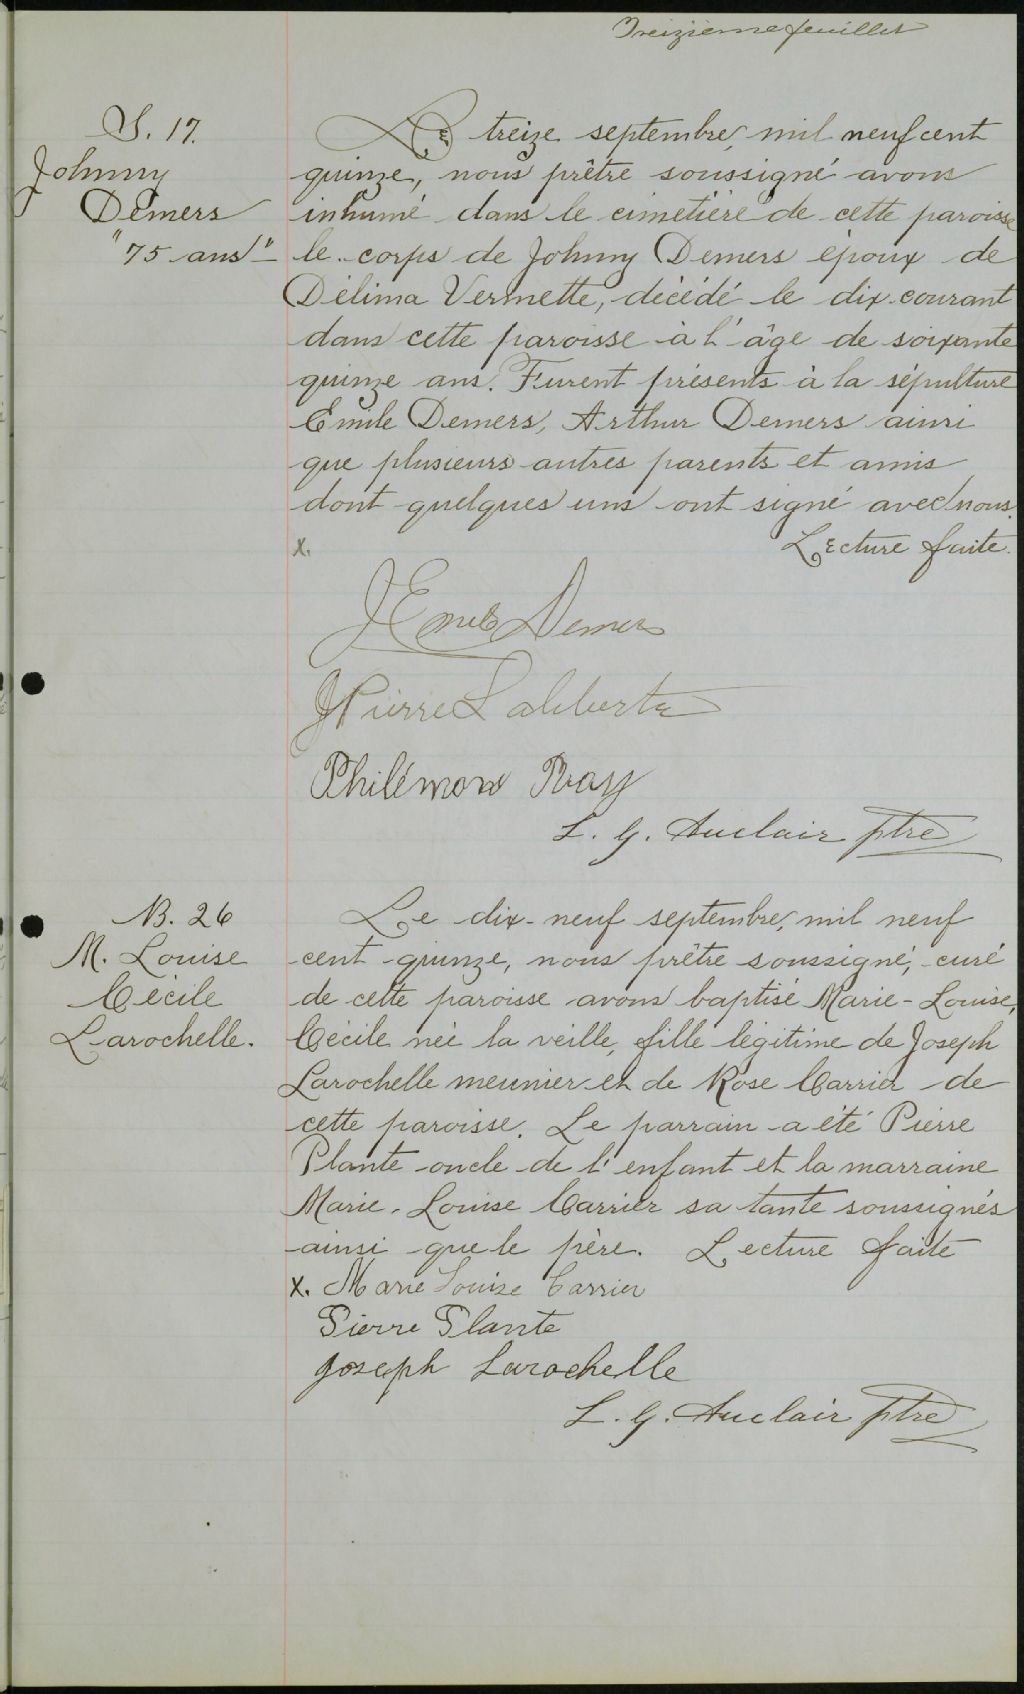 Treizième feuillet
S. 17.
Johnny
Demers
"75 ans"
Le treize septembre, mil neuf cent
quinze, nous prêtre soussigné avons
inhumé dans le cimetière de cette paroisse
le corps de Johnny Demers époux de
Délima Vermette, décédé le dix courant
dans cette paroisse à l'âge de soixante
quinze ans. Furent présents à la sépulture
Emile Demers, Arthur Demers ainsi
que plusieurs autres parents et amis
dont quelques uns ont signé avec nous.
x. Lecture faite.
J Emile Demers
J Pierre Laliberté
Philémon Roy
L. G. Auclair Ptre
B. 26
M. Louise
Cécile
Larochelle.
Le dix-neuf septembre, mil neuf
cent quinze, nous prêtre soussigné, curé
de cette paroisse avons baptisé Marie-Louise,
Cécile née la veille, fille légitime de Joseph
Larochelle meunier et de Rose Carrier de
cette paroisse. Le parrain a été Pierre
Plante oncle de l'enfant et la marraine
Marie-Louise Carrier sa tante soussignés
ainsi que le père. Lecture faite
x. Marie Louise Carrier
Pierre Plante
Joseph Larochelle
L. G. Auclair Ptre